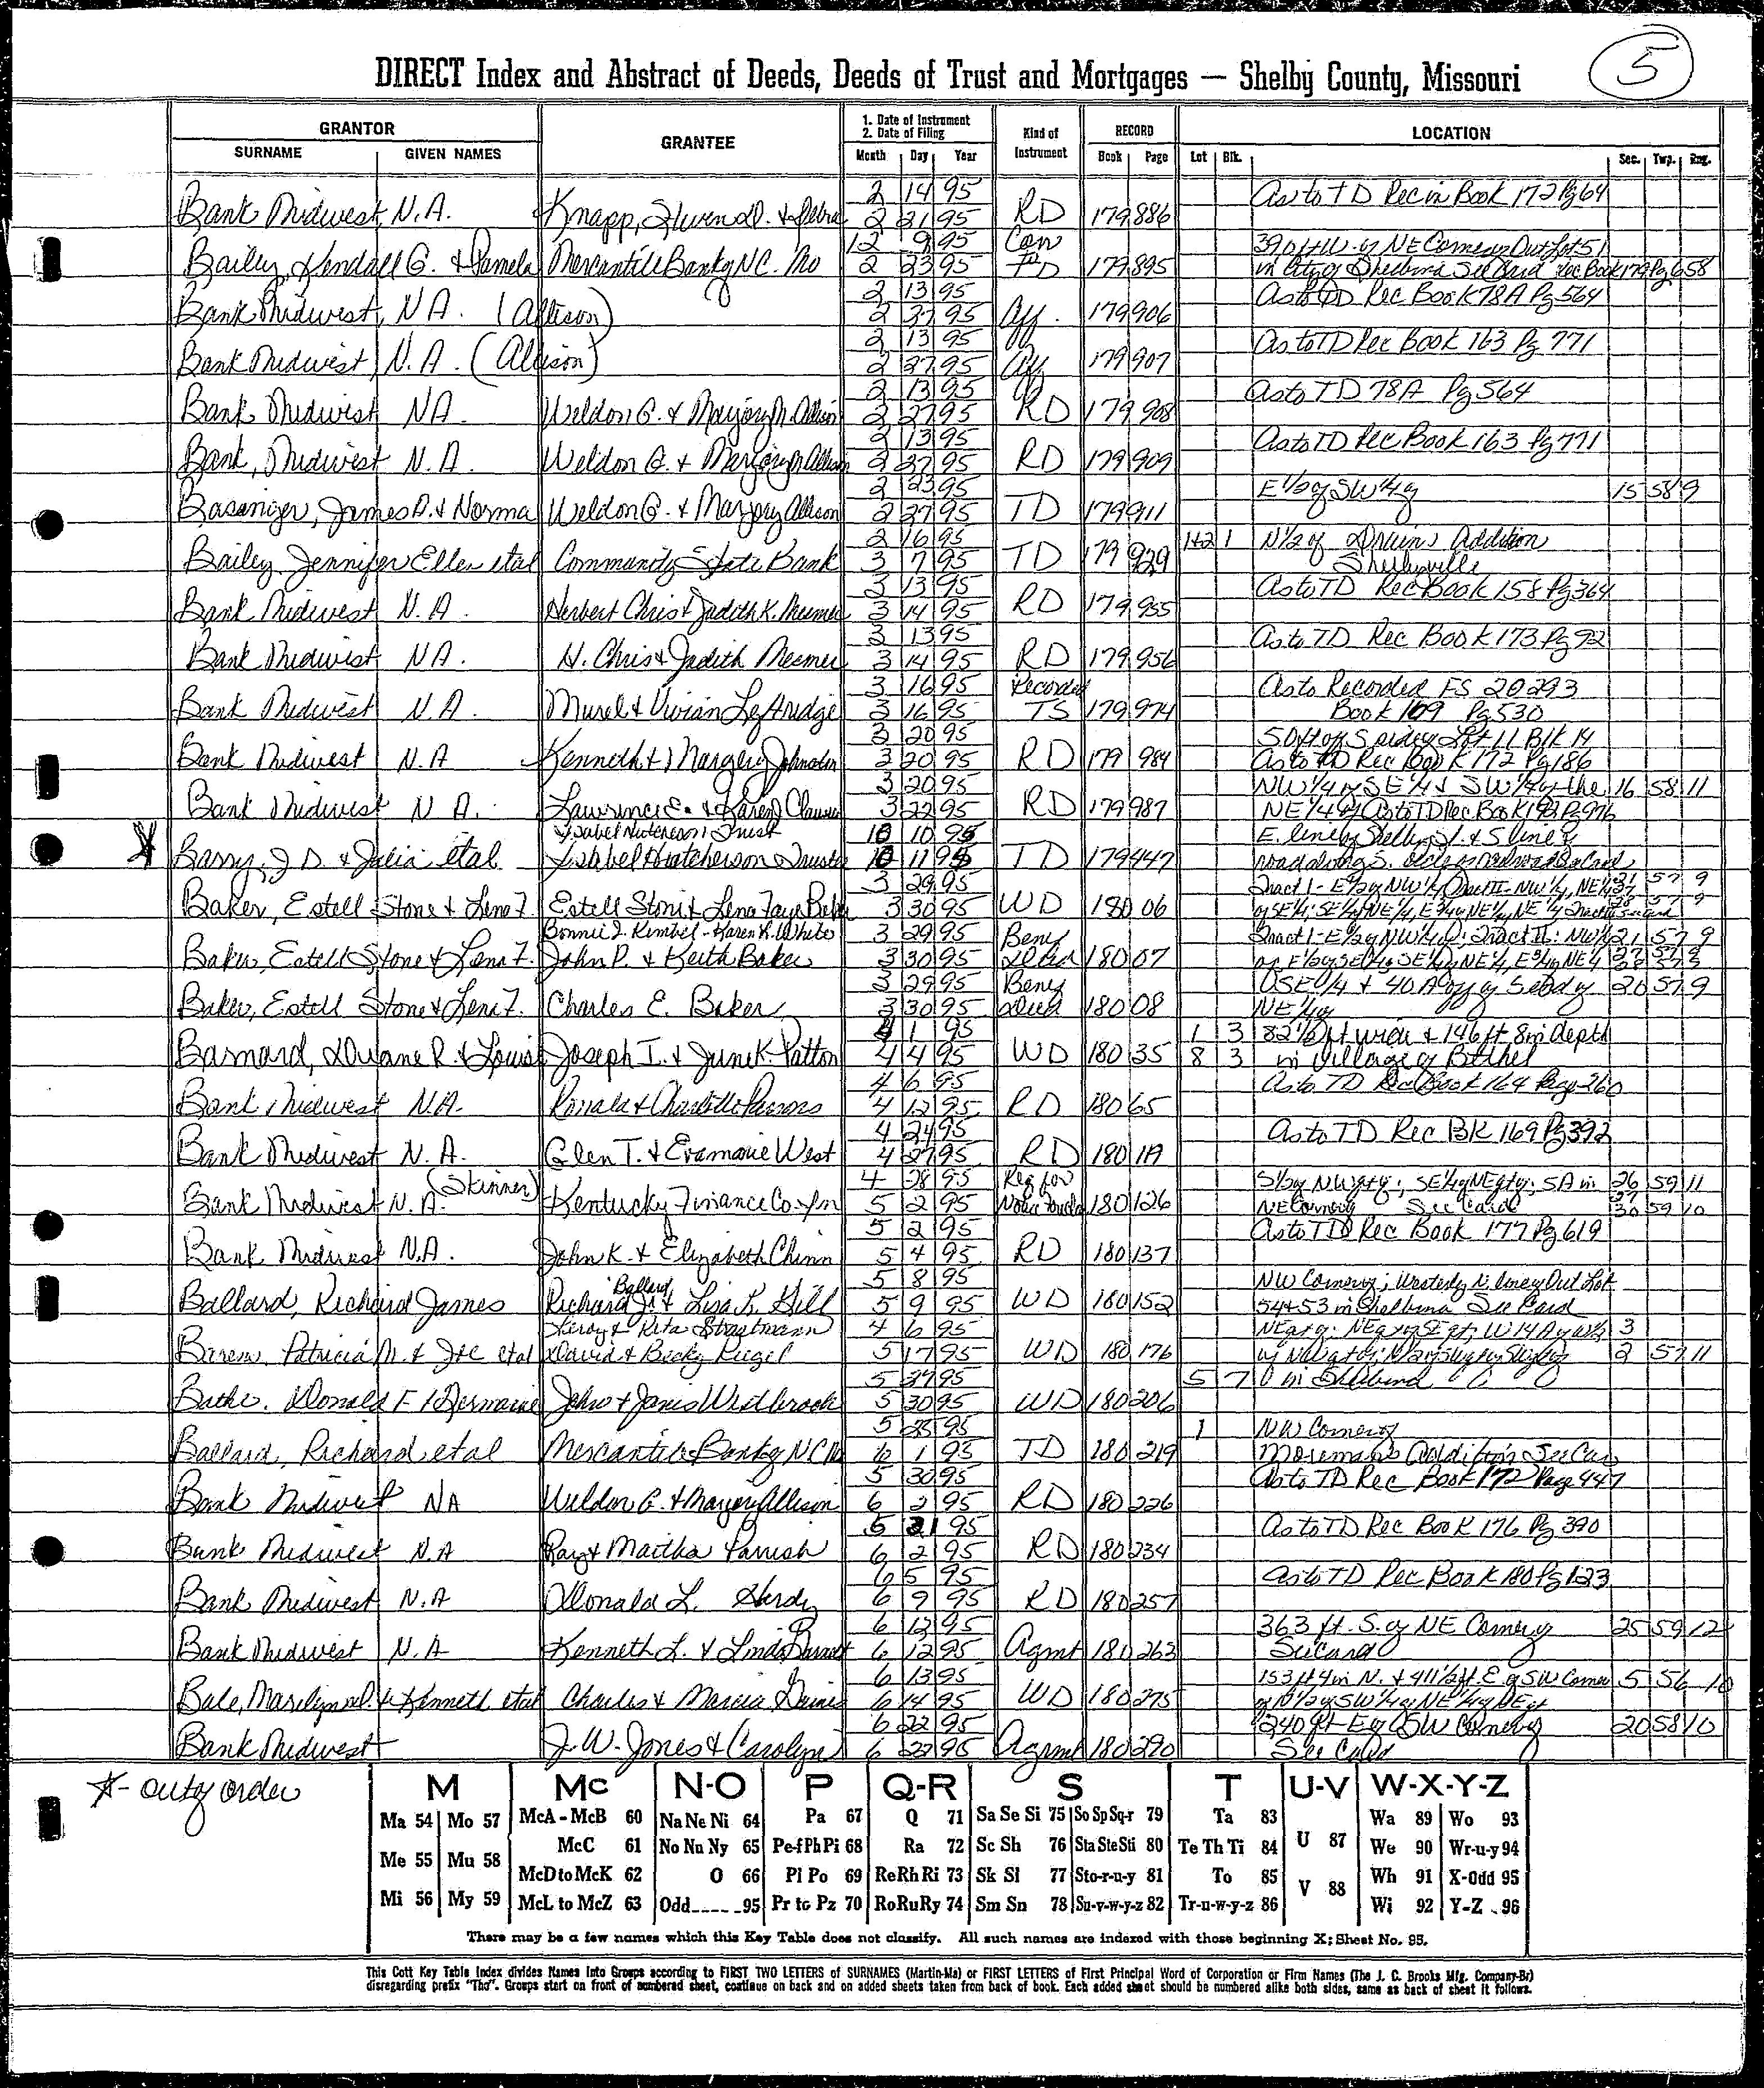 5
DIRECT Index and Abstract of Deeds, Deeds of Trust and Mortgages — Shelby County, Missouri
GRANTOR GRANTEE 1. Date of Instrument 2. Date of Filing Kind of Instrument RECORD LOCATION
SURNAME GIVEN NAMES Month Day Year Book Page Lot Blk. Sec. Twp. Rng.
2 14 95 As to TD Rec in Book 172 Pg 64
Bank Midwest, N.A. Knapp, & 2 21 95 RD 179 886
12 9 95 390 ft W. of NE Corner of Out Lot 51
Bailey, Kendall G. & Pamela Mercantile Bank of N.C. Mo 2 23 95 TD 179 895 in City of Shelbina See Card Rec Book 179 Pg 658
2 13 95 As to TD Rec Book 78A Pg 564
Bank Midwest, N.A. (Allison) 2 27 95 Aff. 179 906
2 13 95 As to TD Rec Book 163 Pg 771
Bank Midwest N.A. (Allison) 2 27 95 Aff. 179 907
2 13 95 As to TD 78A Pg 564
Bank Midwest NA Weldon G. & Marjory M. Allison 2 27 95 RD 179 908
2 13 95 As to TD Rec Book 163 Pg 771
Bank, Midwest N.A. Weldon G. & Marjory M Allison 2 27 95 RD 179 909
2 23 95 E 1/2 of SW 1/4 of 15 58 9
Basinger, James D. & Norma Weldon G. & Marjory Allison 2 27 95 TD 179 911
2 16 95 1+2 1 N 1/2 of Addition
Bailey, Jennifer Ellen etal Community State Bank 3 7 95 TD 179 929 Shelbyville
3 13 95 As to TD Rec Book 158 Pg 364
Bank Midwest N.A. Herbert Chris & Judith K. 3 14 95 RD 179 955
3 13 95 As to TD Rec Book 173 Pg 92
Bank Midwest NA. H. Chris & Judith 3 14 95 RD 179 956
3 16 95 Recorded As to Recorded FS 20293
Bank Midwest N.A. Murel & Vivian 3 16 95 TS 179 974 Book 169 Pg 530
3 20 95 50 ft of S side of Lot 11 Blk 14
Bank Midwest N.A Kenneth & Margery Johnston 3 20 95 RD 179 984 As to TD Rec Book 172 Pg 186
3 20 95 NW 1/4 of SE 1/4 & SW 1/4 of the 16 58 11
Bank Midwest N A. Lawrence E. & Karen 3 22 95 RD 179 987 NE 1/4 of As to TD Rec Book
Isabel Hutcherson Trust 10 10 95 E. line of Shelby St. & S line of
Barry, J D. & Julia etal Isabel Hutcherson Trustee 10 11 95 TD 179 447
3 29 95 Tract I - E 1/2 of NW 1/4 Tract II - NW 1/4, 21 57 9
Baker, Estell Stone & Lena F. Estell Stone & Lena Faye Baker 3 30 95 WD 180 06
Bonnie J. Kimbel - Karen K. White 3 29 95 Beny Tract I - E 1/2 of NW 1/4; Tract II: NW 1/4 21 57 9
Baker, Estell Stone & Lena F. John P. & Keith Baker 3 30 95 Deed 180 07
3 29 95 Beny SE 1/4 & 40 A off of S end of 20 57 9
Baker, Estell Stone & Lena F. Charles E. Baker 3 30 95 Deed 180 08 NE 1/4 of
4 1 95 1 3 82 1/2 ft wide & 146 ft 8 in depth
Barnard, Duane R. & Joseph I. & June K. Patton 4 4 95 WD 180 35 8 3 in Village of Bethel
4 6 95 As to TD Rec Book 164 Page 260
Bank Midwest N.A. Ronald & Charlotte Parsons 4 12 95 RD 180 65
4 24 95 As to TD Rec BK 169 Pg 392
Bank Midwest N.A. Glen T. & Evamarie West 4 27 95 RD 180 119
(Skinner) 4 28 95 Req for 26 59 11
Bank Midwest N.A. Kentucky Finance Co. Inc 5 2 95 180 126 NE Corner of See Card 30 59 10
5 2 95 As to TD Rec Book 177 Pg 619
Bank Midwest N.A. John K. & Elizabeth Chinn 5 4 95 RD 180 137
Ballard 5 8 95 NW Corner of; Westerly N. line of Out Lot
Ballard, Richard James Richard J. & Lisa K. Gill 5 9 95 WD 180 152 54 & 53 in Shelbina See Card
Leroy & Rita Stroatmann 4 6 95 3
Patricia M. & etal David & Becky 5 17 95 WD 180 176 2 57 11
5 27 95 5 7 in Shelbina
Donald F & John & Janis Westbrook 5 30 95 WD 180 206
5 25 95 1 NW Corner of
Ballard, Richard etal Mercantile Bank of NC Mo 6 1 95 TD 180 219 Addition See Card
5 30 95 As to TD Rec Book 172 Page 447
Bank Midwest NA Weldon G. & Marjory Allison 6 2 95 RD 180 226
5 31 95 As to TD Rec Book 176 Pg 390
Bank Midwest N.A Ray & Martha Parrish 6 2 95 RD 180 234
6 5 95 As to TD Rec Book 180 Pg 123
Bank Midwest N.A Donald L. Hardy 6 9 95 RD 180 257
6 12 95 363 ft. S. of NE Corner of 25 59 12
Bank Midwest N.A Kenneth L. & Linda 6 12 95 Agmt 180 263 See Card
6 13 95 153 ft 4 in N. & 411 1/2 ft. E of SW Corner 5 56 10
Bale, Marilyn D. & Kenneth etal Charles & Marcia 6 14 95 WD 180 275
6 22 95 240 ft E of SW Corner of 20 58 10
Bank Midwest J.W. Jones & Carolyn 6 22 95 Agmt 180 290 See Card
* - out of order
M Mc N-O P Q-R S T U-V W-X-Y-Z
Ma 54 Mo 57 McA - McB 60 Na Ne Ni 64 Pa 67 Q 71 Sa Se Si 75 So Sp Sq-r 79 Ta 83 Wa 89 Wo 93
McC 61 No Nu Ny 65 Pe-f Ph Pi 68 Ra 72 Sc Sh 76 Sta Ste Sti 80 Te Th Ti 84 U 87 We 90 Wr-u-y 94
Me 55 Mu 58 McD to McK 62 O 66 Pl Po 69 Re Rh Ri 73 Sk Sl 77 Sto-r-u-y 81 To 85 V 88 Wh 91 X-Odd 95
Mi 56 My 59 McL to McZ 63 Odd 95 Pr to Pz 70 Ro Ru Ry 74 Sm Sn 78 Su-v-w-y-z 82 Tr-u-w-y-z 86 Wi 92 Y-Z 96
There may be a few names which this Key Table does not classify. All such names are indexed with those beginning X; Sheet No. 95.
This Cott Key Table Index divides Names into Groups according to FIRST TWO LETTERS of SURNAMES (Martin-Ma) or FIRST LETTERS of First Principal Word of Corporation or Firm Names (The J. C. Brooks Mfg. Company-Br)
disregarding prefix "The". Groups start on front of numbered sheet, continue on back and on added sheets taken from back of book. Each added sheet should be numbered alike both sides, same as back of sheet it follows.